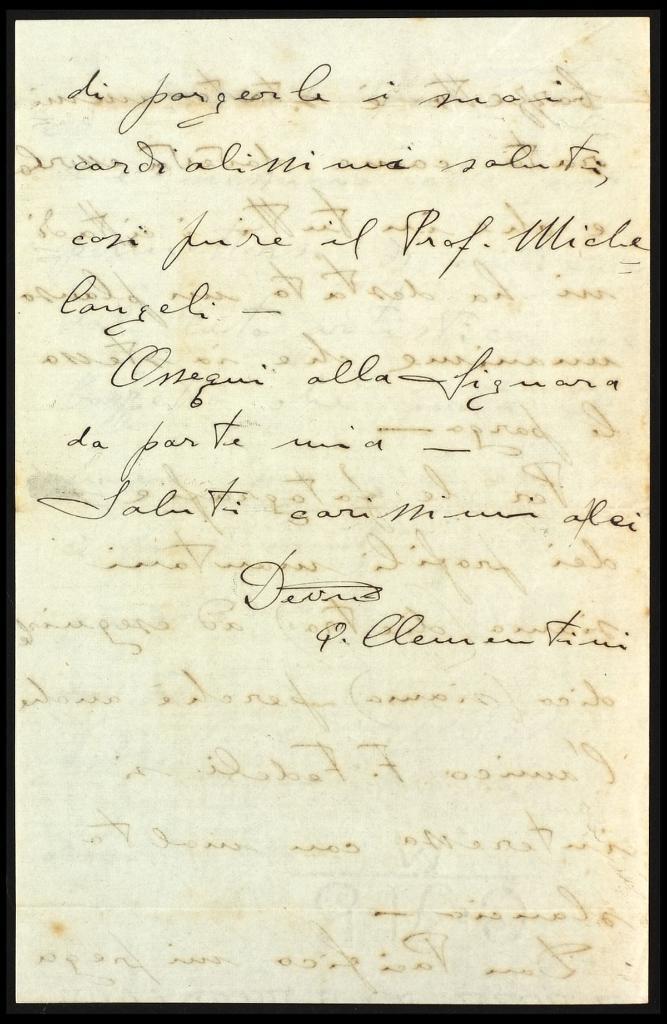 di porgerle i suoi
cordialissimi saluti,
così pure il Prof. Miche=
langeli —
Ossequi alla Signora
da parte mia —
Saluti carissimi a lei
Devmo
P. Clementini